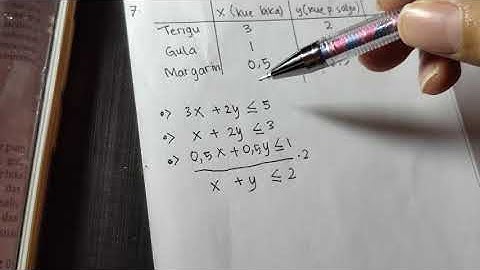 7.
x (kue laka) y (kue p. salju)
Terigu 3 2
Gula 1
Margarin 0,5
•> 3x + 2y ≤ 5
•> x + 2y ≤ 3
•> 0,5x + 0,5y ≤ 1 .2
x + y ≤ 2